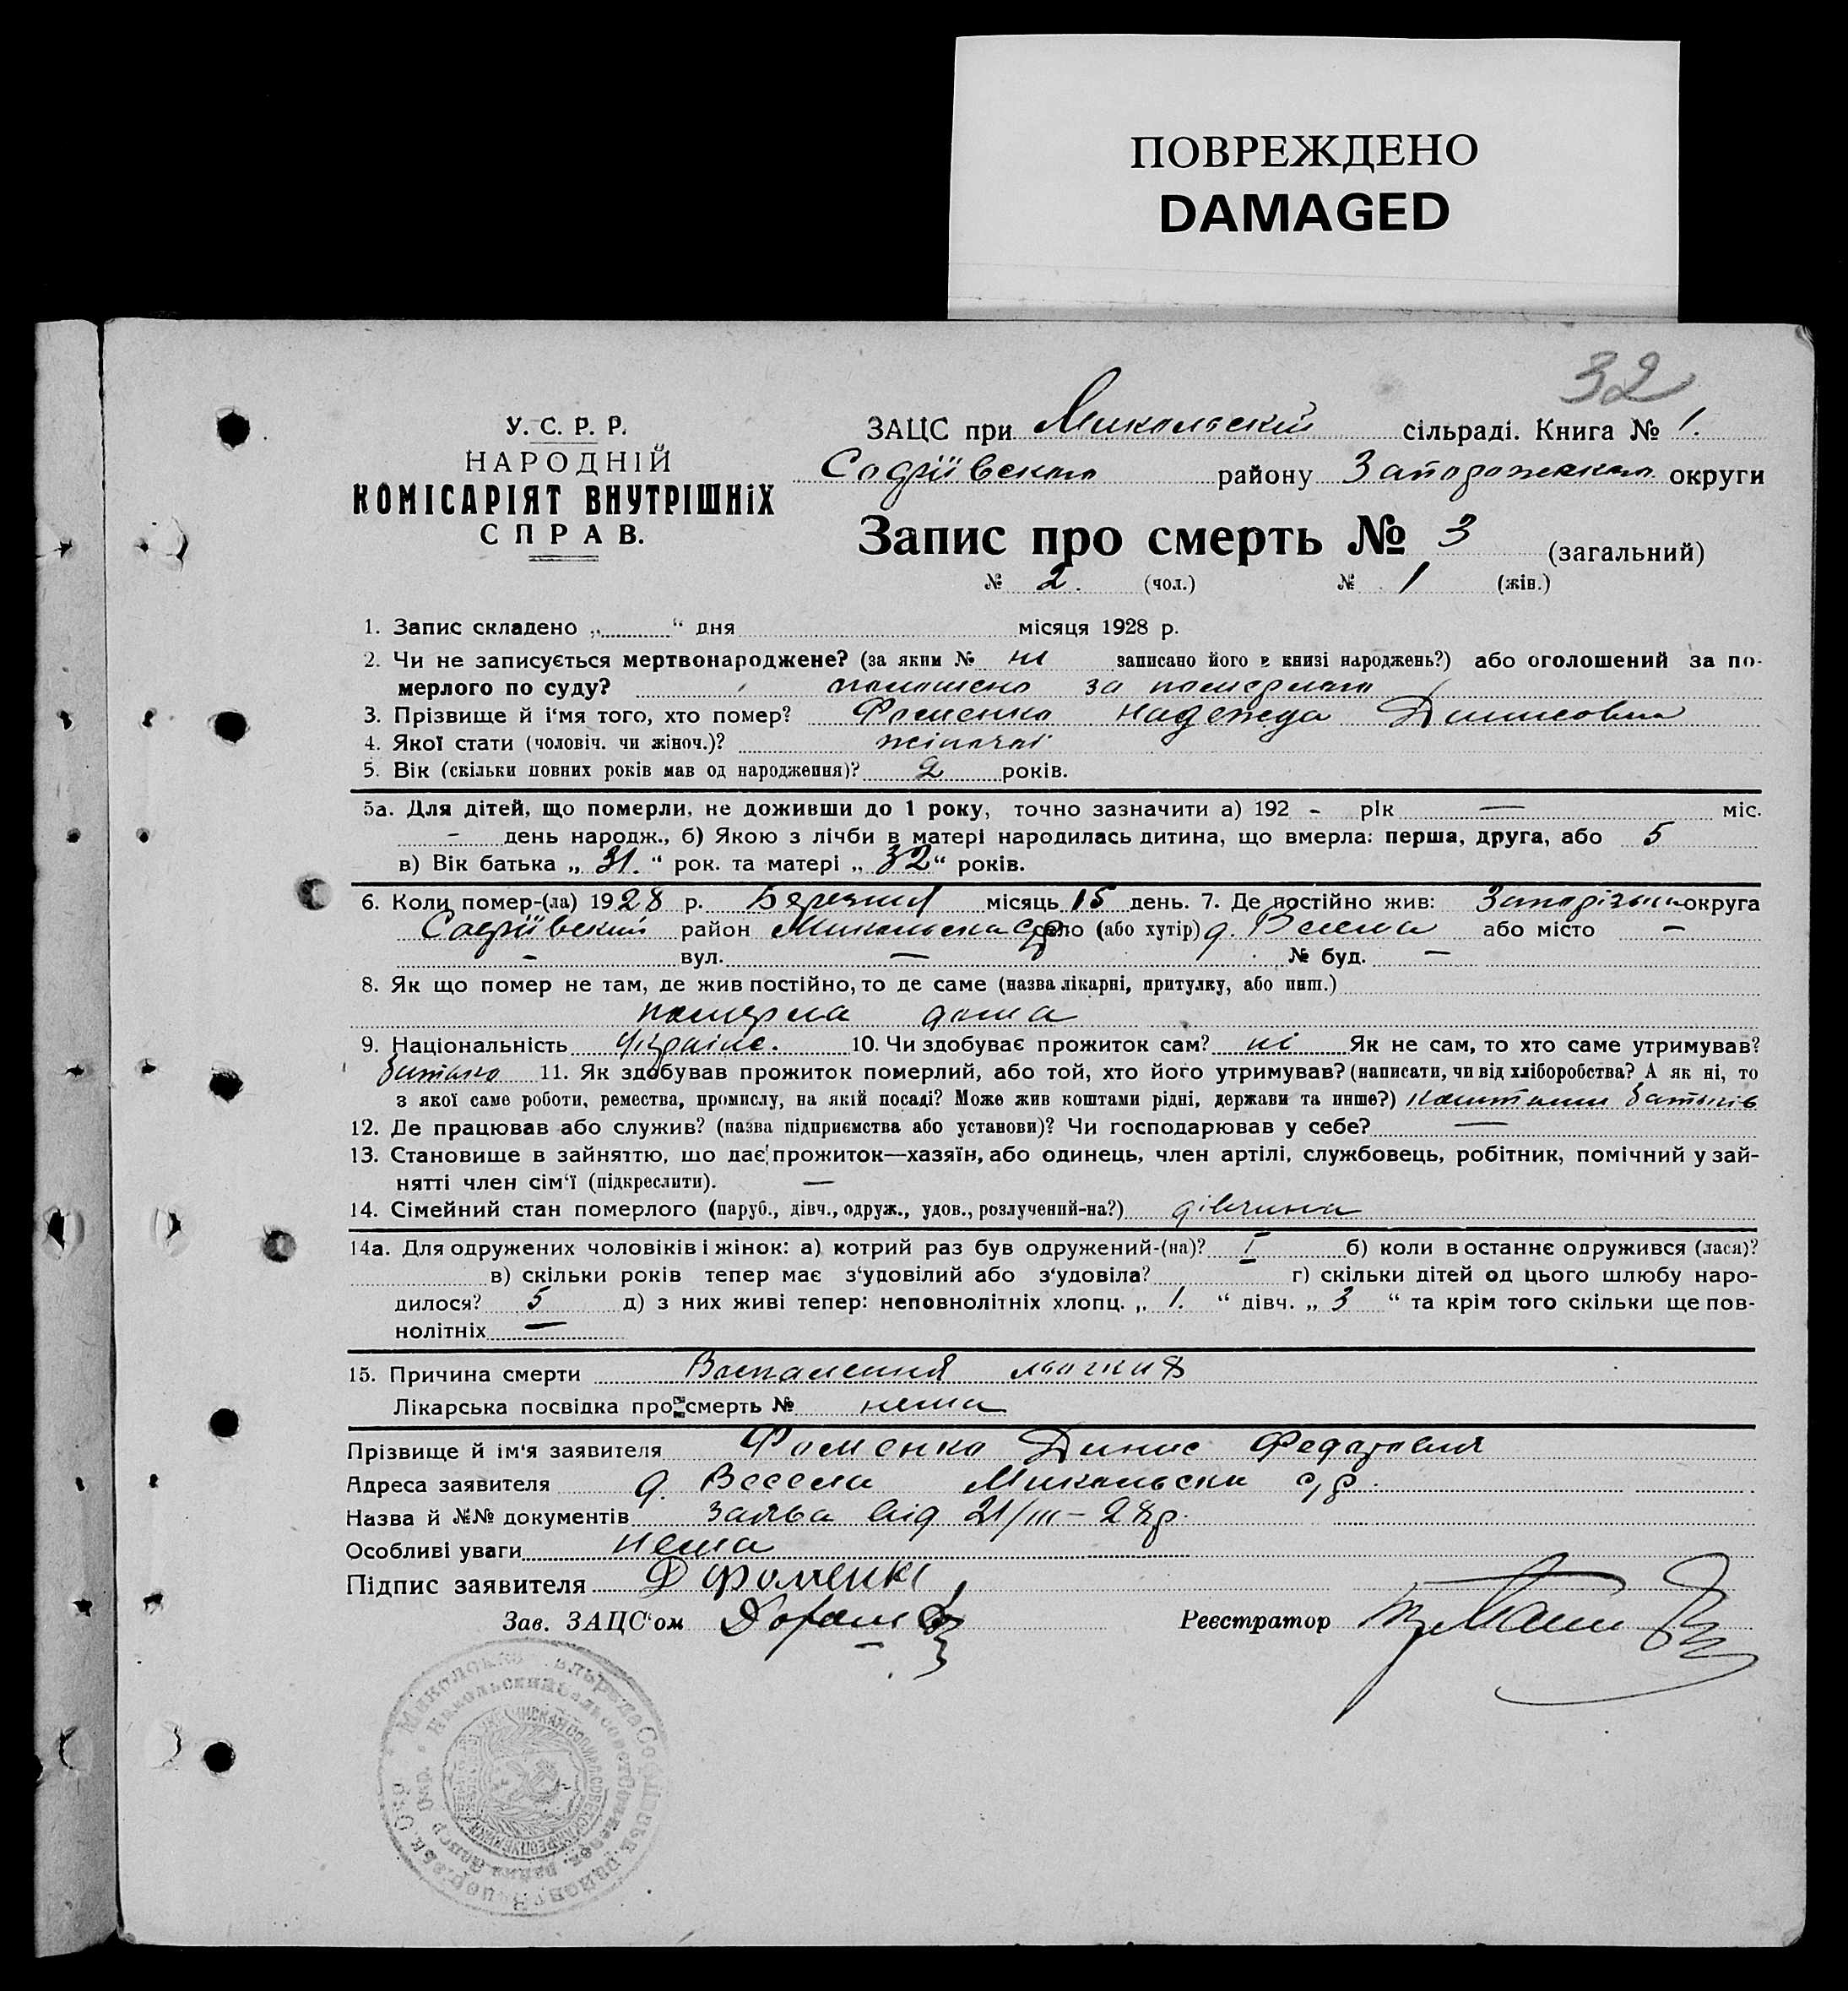 ПОВРЕЖДЕНО
DAMAGED
32
У. С. Р. Р.
НАРОДНІЙ
КОМІСАРІЯТ ВНУТРІШНІХ
СПРАВ.
ЗАЦС при Микольскій сільраді. Книга № 1.
Софіївского району Запорожского округи
Запис про смерть № 3 (загальний)
№ 2. (чол.) № 1 (жін.)
1. Запис складено „ “ дня місяця 1928 р.
2. Чи не записується мертвонароджене? (за яким № ні записано його в книзі народжень?) або оголошений за по-
мерлого по суду? за померлого
3. Прізвище й і‘мя того, хто помер? Фоменко Надежда Динисовна
4. Якої стати (чоловіч. чи жіноч.)? жіночої
5. Вік (скільки повних років мав од народження)? 2 років.
5а. Для дітей, що померли, не доживши до 1 року, точно зазначити а) 192 - рік — міс.
- день народж., б) Якою з лічби в матері народилась дитина, що вмерла: перша, друга, або 5
в) Вік батька „ 31. “ рок. та матері „ 32 “ років.
6. Коли помер-(ла) 1928 р. Березня місяць 15 день. 7. Де постійно жив: округа
Софіївский район Микольска с/р село (або хутір) д. Весела або місто —
- вул. — № буд. —
8. Як що помер не там, де жив постійно, то де саме (назва лікарні, притулку, або инш.)
померла дома
9. Національність Україне. 10. Чи здобуває прожиток сам? ні Як не сам, то хто саме утримував?
батько 11. Як здобував прожиток померлий, або той, хто його утримував? (написати, чи від хліборобства? А як ні, то
з якої саме роботи, ремества, промислу, на якій посаді? Може жив коштами рідні, держави та инше?) коштами батьків
12. Де працював або служив? (назва підприємства або установи)? Чи господарював у себе? —
13. Становище в зайняттю, що дає прожиток—хазяїн, або одинець, член артілі, службовець, робітник, помічний у зай-
нятті член сім‘ї (підкреслити). —
14. Сімейний стан померлого (паруб., дівч., одруж., удов., розлучений-на?) дівчина
14а. Для одружених чоловіків і жінок: а) котрий раз був одружений-(на)? I б) коли в останнє одружився (лася)?
в) скільки років тепер має з‘удовілий або з‘удовіла? г) скільки дітей од цього шлюбу наро-
дилося? 5 д) з них живі тепер: неповнолітніх хлопц. „ 1. “ дівч. „ 3 “ та крім того скільки ще пов-
нолітніх —
15. Причина смерти Воспаления
Лікарська посвідка про смерть № нема
Прізвище й ім'я заявителя Фоменко Динис Федоровия
Адреса заявителя д. Весела Микольска с/р.
Назва й №№ документів заява від 21/III-28р.
Особливі уваги нема
Підпис заявителя Д Фоменко
Зав. ЗАЦС‘ом
Реєстратор